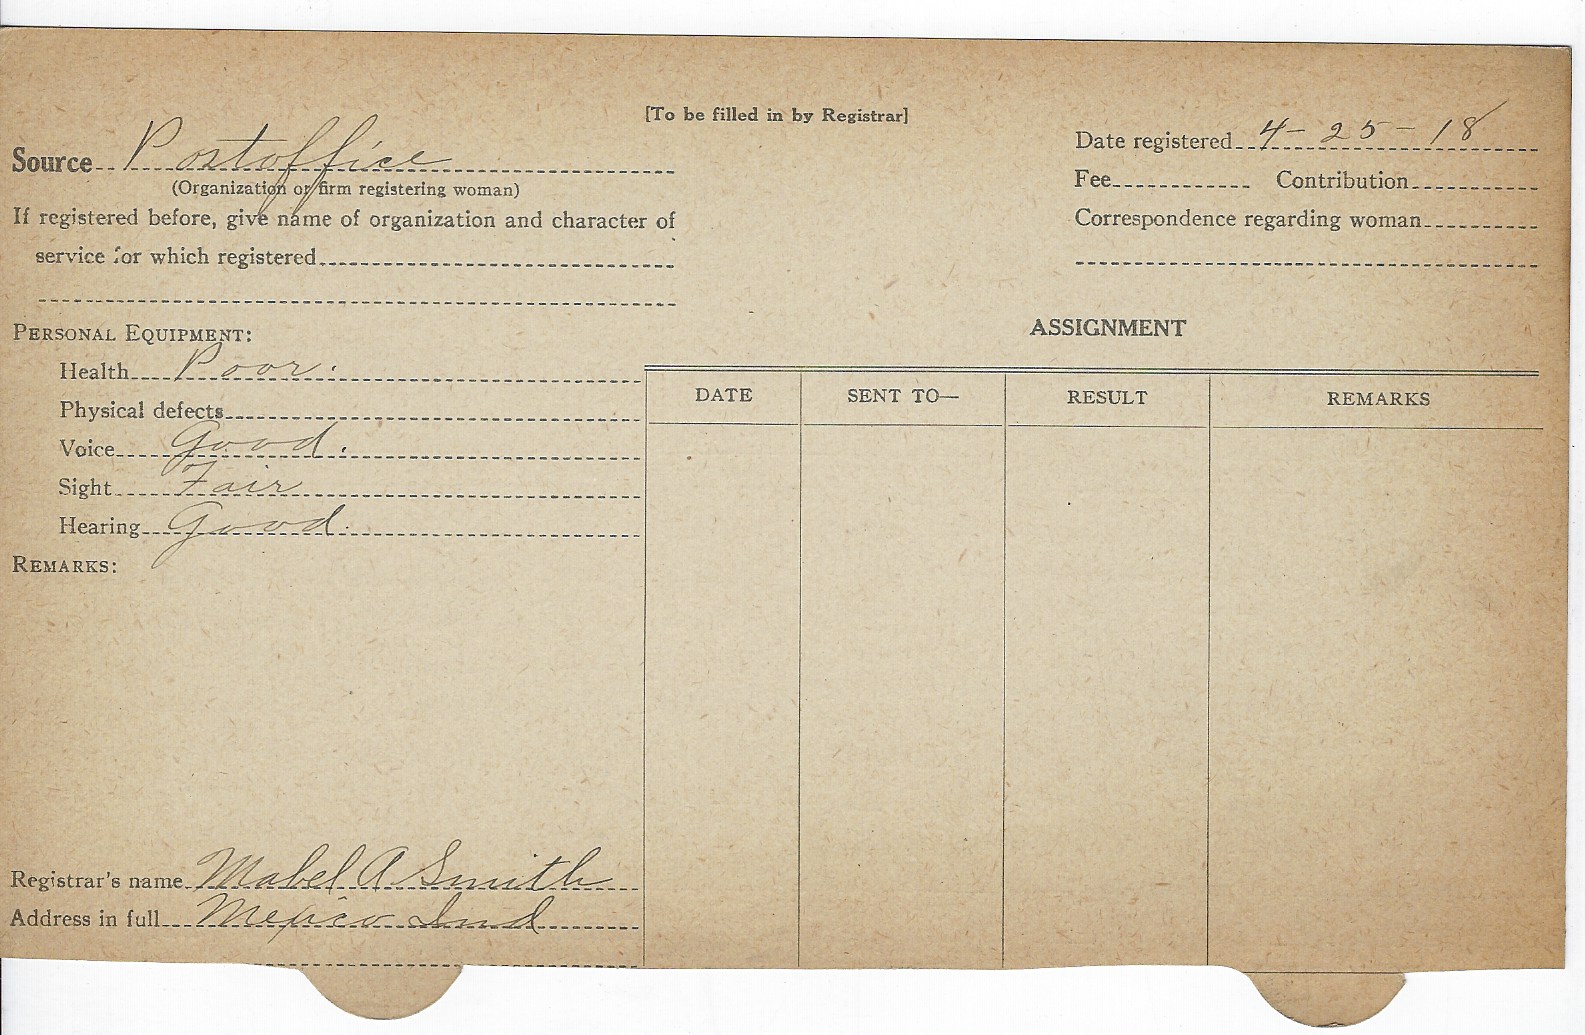 [To be filled in by Registrar]
Source Postoffice
(Organization or firm registering woman)
If registered before, give name of organization and character of
service for which registered
Date registered 4-25-18
Fee Contribution
Correspondence regarding woman
PERSONAL EQUIPMENT:
Health Poor.
Physical defects
Voice Good.
Sight Fair
Hearing Good.
REMARKS:
ASSIGNMENT
DATE SENT TO— RESULT REMARKS
Registrar's name Mabel A Smith
Address in full Mexico Ind